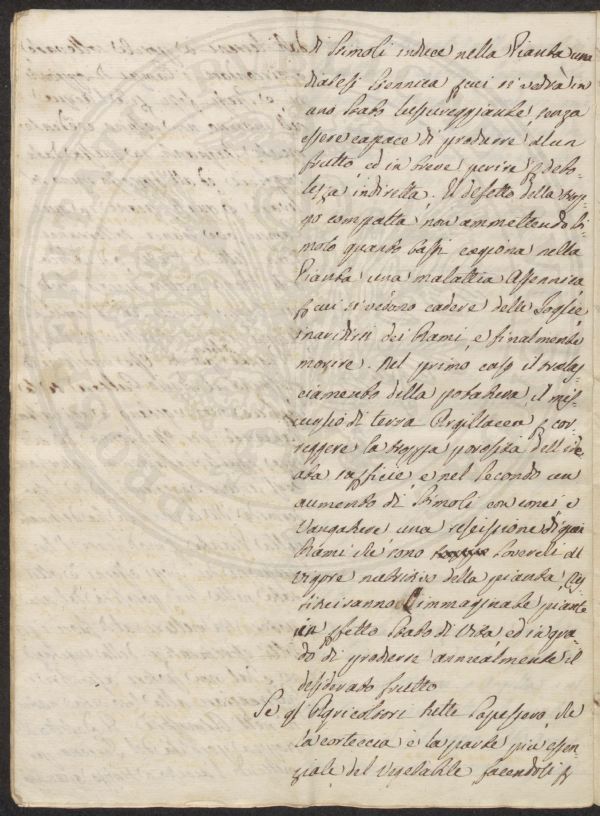 di stimoli induce nella Pianta una
diatesi stennica p cui si vedrà in
uno stato lussureggiante senza
essere capace di produrre alcun
frutto, ed in breve perire p debo-
lezza indiretta. Il difetto della trop-
po compatta non ammettendo sti-
molo quanto basti cagiona nella
Pianta una malattia Assennica
p cui si vedono cadere delle foglie,
inaridirsi dei Rami, e finalmente
morire. Nel primo caso il tralas-
ciamento della potatura il mis-
cuglio di terra Argillacea p cor-
reggere la troppa porosità dell'
ata superficie, e nel secondo un
aumento di stimoli con conci e
Vangature una rescissione di quei
Rami che sono soverchi al
vigore nutritivo della pianta,
immaginate piante
in pfetto stato di Vita, ed in gra-
do di produrre annualmente il
desiderato frutto
Se gl Agricoltori tutti sapessero che
la corteccia è la parte più essen-
ziale del vegetabile, facendosi p